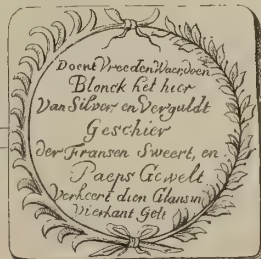 Doent Vreeden Waer, doen
Blonck het hier
Van Silver en Verguldt
Geschier
der Fransen Sweert, en
Paeps Gewelt
Verkeert dien Glans in
Vierkant Gelt